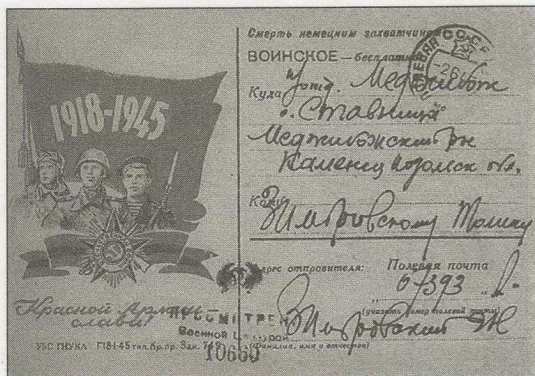 1918-1945
Красной Армии
слава!
УВС ГНУКА Г18-1-45 тип. бр. ар. Зак. 749
Смерть немецким захватчикам
ВОИНСКОЕ — бесплатно
СССР
Куда Меджибож
с. Ставница
Меджибожский рн
Каменец Подольск обл.
Кому
Зимбровскому Толику
Адрес отправителя: Полевая почта
07393
(укажите номер полевой почты)
ПРОСМОТРЕНО
Военной Цензурой
10660
(Фамилия, имя и отчество)